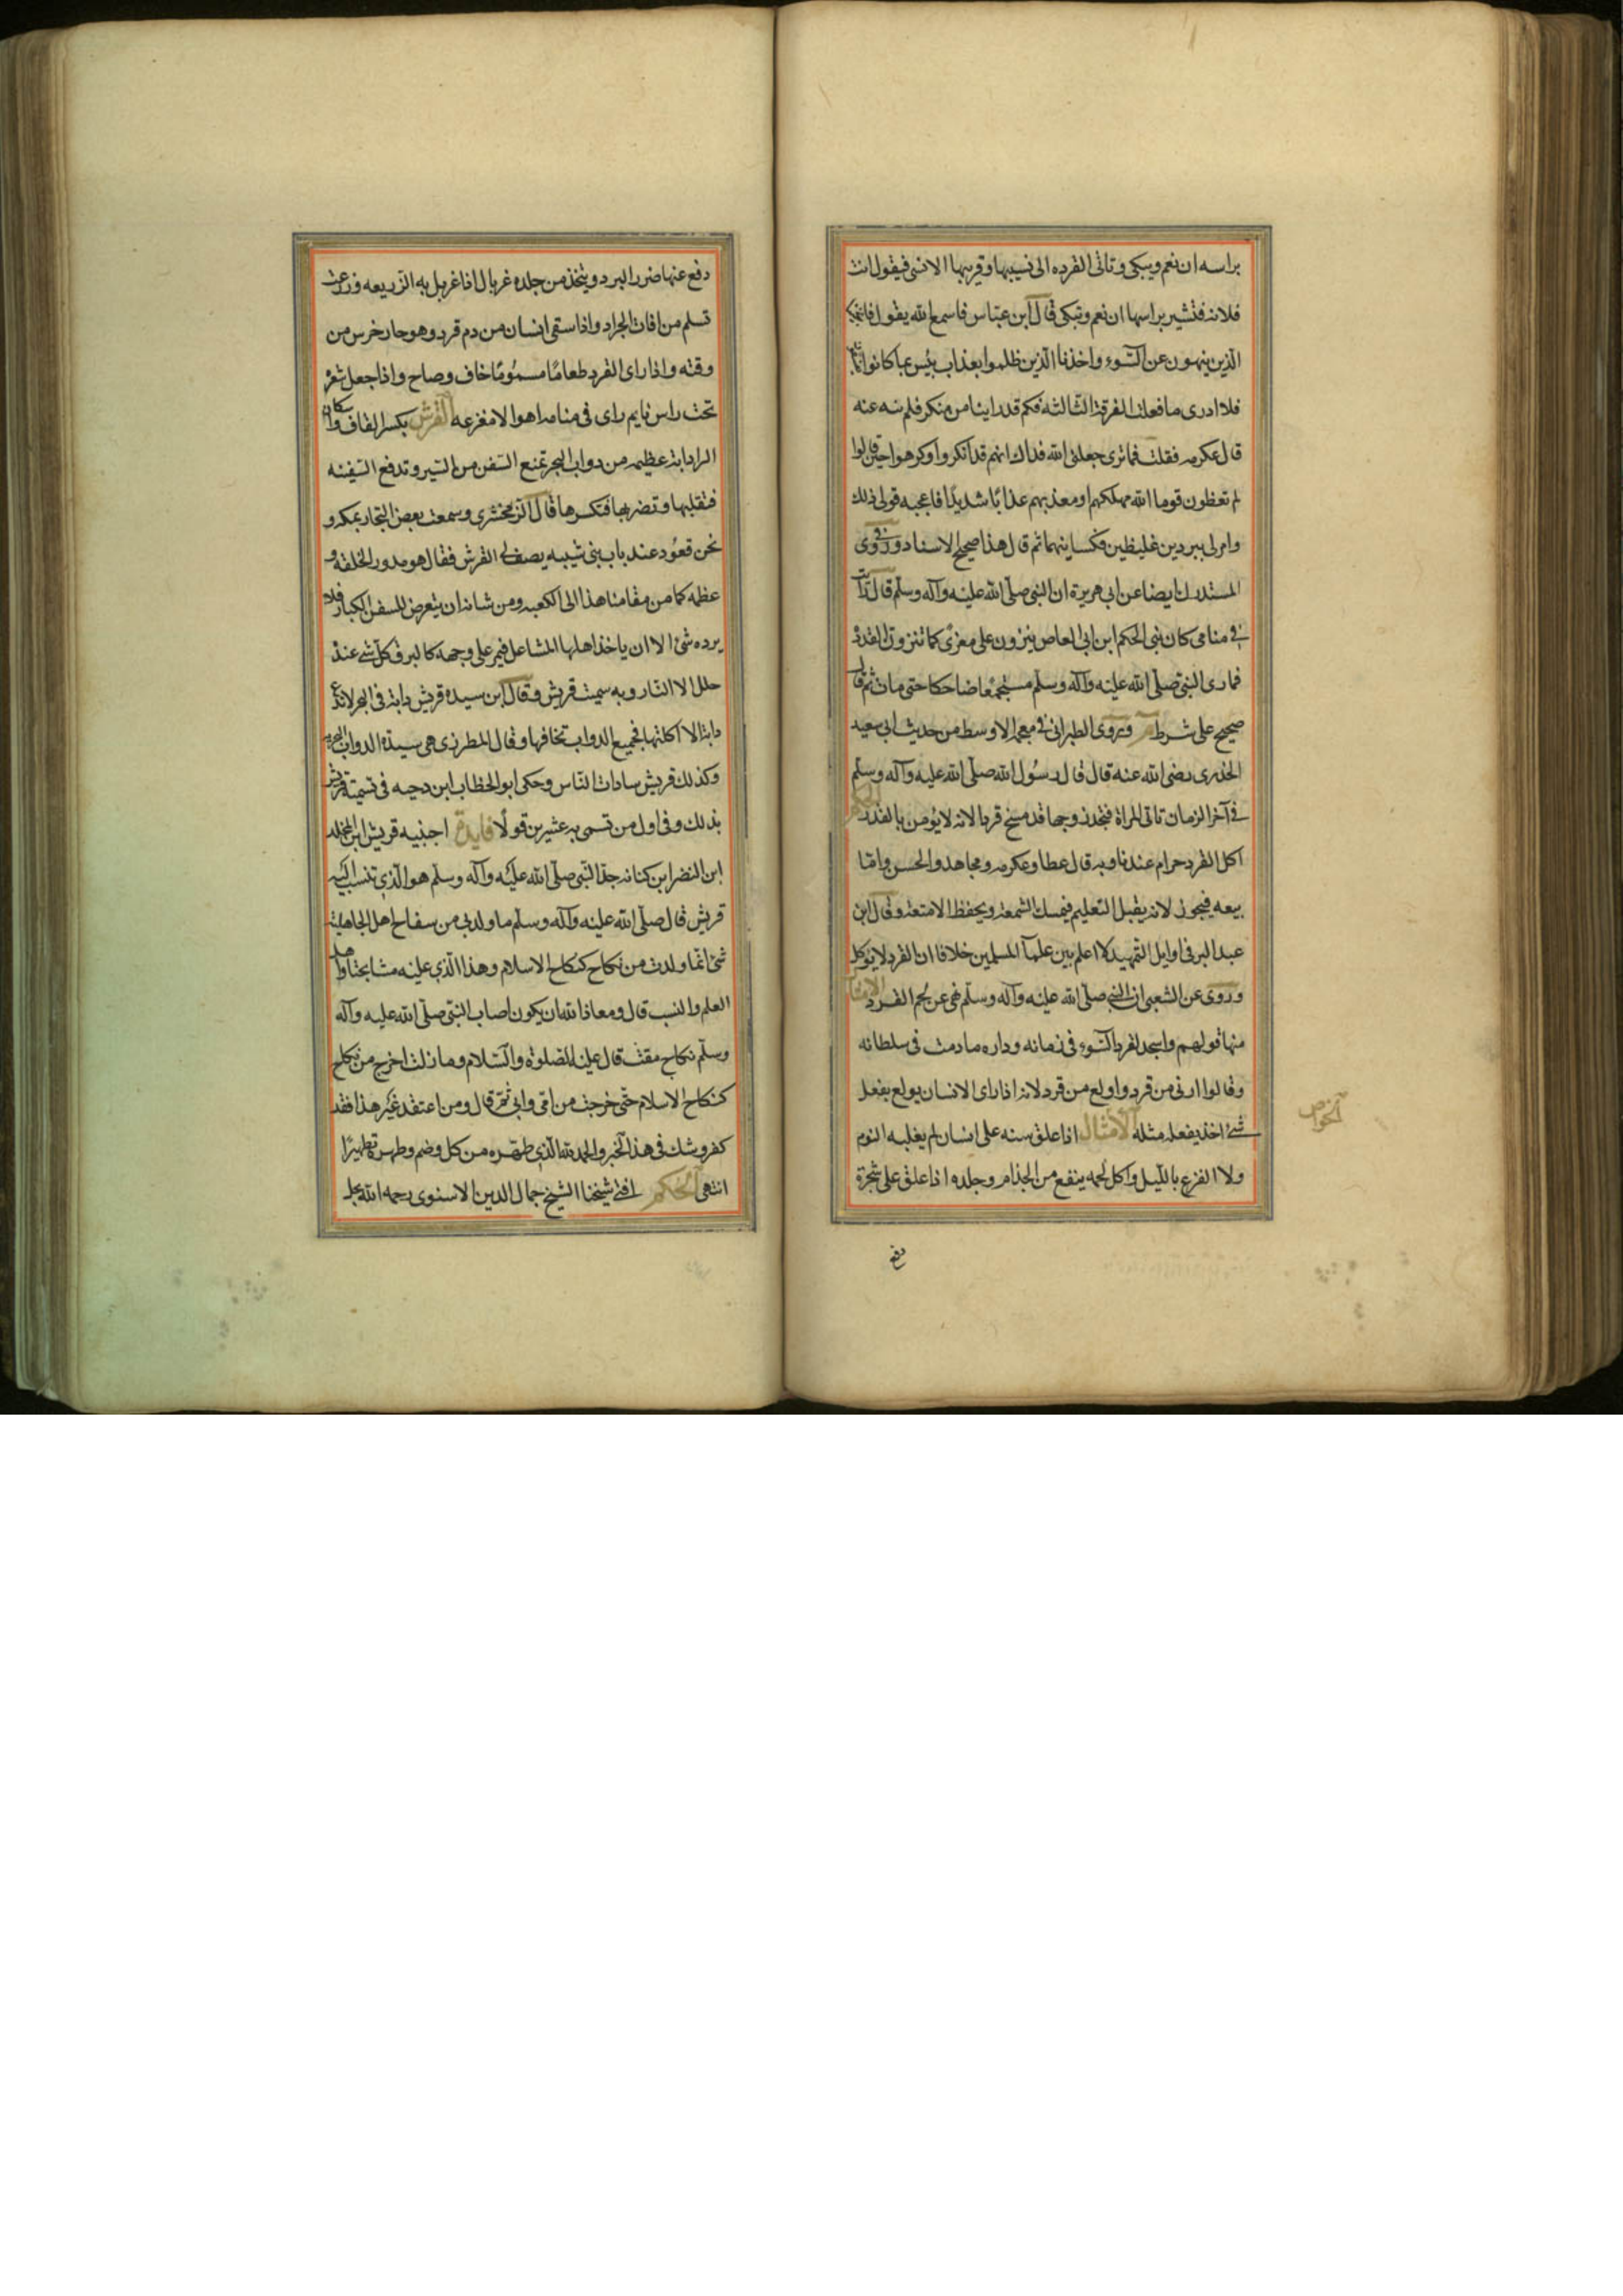 براسه ان نعم ويبكى وتاتى القرده الى نسيبها وقريبها الانسى فيقول انت
فلانه فتشير براسها ان نعم وتبكى قال ابن عباس فاسمع الله يقول فانجينا
الذين ينهون عن السوء واخذنا الذين ظلموا بعذاب بئيس بما كانوا
فلا ادرى ما فعلت الفرقة الثالثة فكم قد راينا من منكر فلم ننه عنه
قال عكرمه فقلت فما ترى جعلنى الله فداك انهم قد انكروا وكرهوا حين قالوا
لم تعظون قوما الله مهلكهم او معذبهم عذابا شديدا فاعجبه قولى ذلك
وامر لى ببردين غليظين فكسانيهما ثم قال هذا صحيح الاسناد وروى فى
المستدرك ايضا عن ابى هريرة ان النبى صلى الله عليه وآله وسلم قال رايت
فى منامى كان بنى الحكم ابن ابى العاص ينزون على منبرى كما تنزو القردة
فما رى النبى صلى الله عليه وآله وسلم مستجمعا ضاحكا حتى مات ثم قال
صحيح على شرط م وروى الطبرانى فى معجمه الاوسط من حديث ابى سعيد
الخدرى رضى الله عنه قال قال رسول الله صلى الله عليه وآله وسلم
فى آخر الزمان تاتى المراة فتجد زوجها قد مسخ قردا لانه لا يؤمن بالقدر الحكم
اكل القرد حرام عندنا وبه قال عطا وعكرمه ومجاهد والحسن واما
بيعه فيجوز لانه يقبل التعليم فيمسك الشمعة ويحفظ الامتعة وقال ابن
عبد البر فى اوايل التمهيد لا اعلم بين علمآ المسلمين خلافا ان القرد لا يوكل
وروى عن الشعبى ان النبى صلى الله عليه وآله وسلم نهى عن لحم القرد الامثال
منها قولهم واسجد لقرد السوء فى زمانه وداره ما دمت فى سلطانه
وقالوا ازنى من قرد واولع من قرد لانه اذا راى الانسان يولع بفعل
شئ اخذ يفعل مثله الامثال اذا علق سنه على انسان لم يغلبه النوم
الخواص
ولا الفزع بالليل واكل لحمه ينفع من الجذام وجلده اذا علق على شجرة
دفع
دفع عنها ضرر البرد ويتخذ من جلده غربال اذا غربل به الزريعه وزرعت
تسلم من افات الجراد واذا سقى انسان من دم قرد وهو حار خرس من
وقته واذا راى القرد طعاما مسموما خاف وصاح واذا جعل شعره
تحت راس نايم راى فى منامه اهوالا مفزعه القرش بكسر القاف واسكان
الرا دابة عظيمه من دواب البحر تمنع السفن من السير وتدفع السفينه
فتقلبها وتضربها فتكسرها قال الزمخشرى وسمعت بعض التجار بمكه و
نحن قعود عند باب بنى شيبه يصف لى القرش فقال هو مدور الخلقه و
عظمه كما من مقامنا هذا الى الكعبه ومن شانه ان يتعرض للسفن الكبار فلا
يرده شئ الا ان ياخذ اهلها المشاعل فيمر على وجهه كالبرق وكل شئ عنده
جلل الا النار وبه سميت قريش وقال ابن سيده قريش دابة فى البحر لا تدع
دابة الا اكلتها فجميع الدواب تخافها وقال المطرزى هى سيدة الدواب البحريه
وكذلك قريش سادات الناس وحكى ابو الخطاب ابن دحيه فى تسمية قريش
بذلك وفى اول من تسمى به عشرين قولا فايدة اجنبيه قريش ابن المخلد
ابن النضر ابن كنانه جد النبى صلى الله عليه وآله وسلم هو الذى تنسب اليه
قريش قال صلى الله عليه وآله وسلم ما ولدنى من سفاح اهل الجاهلية
شئ انما ولدت من نكاح كنكاح الاسلام وهذا الذى عليه مشايخنا واهل
العلم والنسب قال ومعاذ الله ان يكون اصاب النبى صلى الله عليه وآله
وسلم نكاح مقت قال عليه الصلوة والسلام وما زلت اخرج من نكاح
كنكاح الاسلام حتى خرجت من امى وابى ثم قال ومن اعتقد غير هذا فقد
كفر وشك فى هذا الخبر والحمد لله الذى طهره من كل وضم وطهره تطهيرا
انتهى الحكم افتى شيخنا الشيخ جمال الدين الاسنوى رحمه الله بحل